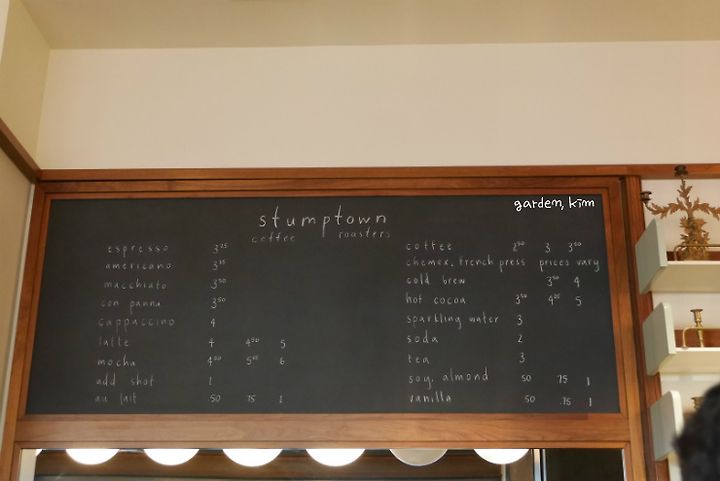 garden, kim
stumptown
coffee roasters
espresso 3 25
americano 3 25
macchiato 3 50
con panna 3 50
cappuccino 4
latte 4 4 50 5
mocha 4 50 5
add shot 1
au lait 50 75 1
coffee 2 50 3 3 50
chemex, french press prices vary
cold brew 3 50 4
hot cocoa 3 50 5
sparkling water 3
soda 2
tea 3
soy, almond 50 75 1
vanilla 50 75 1